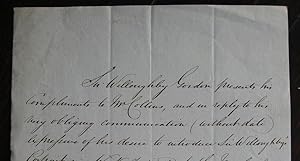 Sir Willoughby Gordon presents his
Compliments to Mr Collins, and in reply to his
very obliging communication (without date)
expressive of his desire to introduce Sir Willoughby's